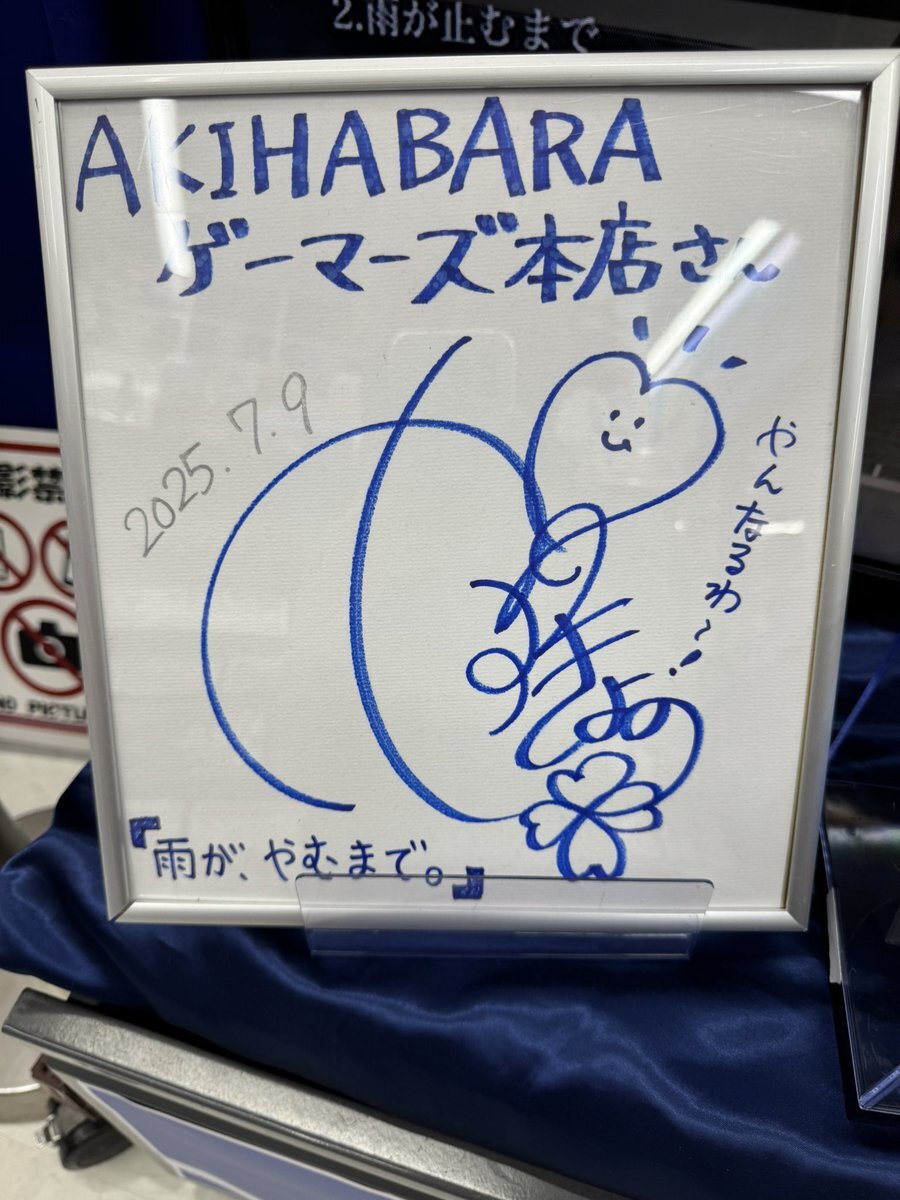 2.雨が止むまで
AKIHABARA
ゲーマーズ本店さん
2025.7.9
やんなるわ〜!
『雨が、やむまで。』
影禁
NO PICTU